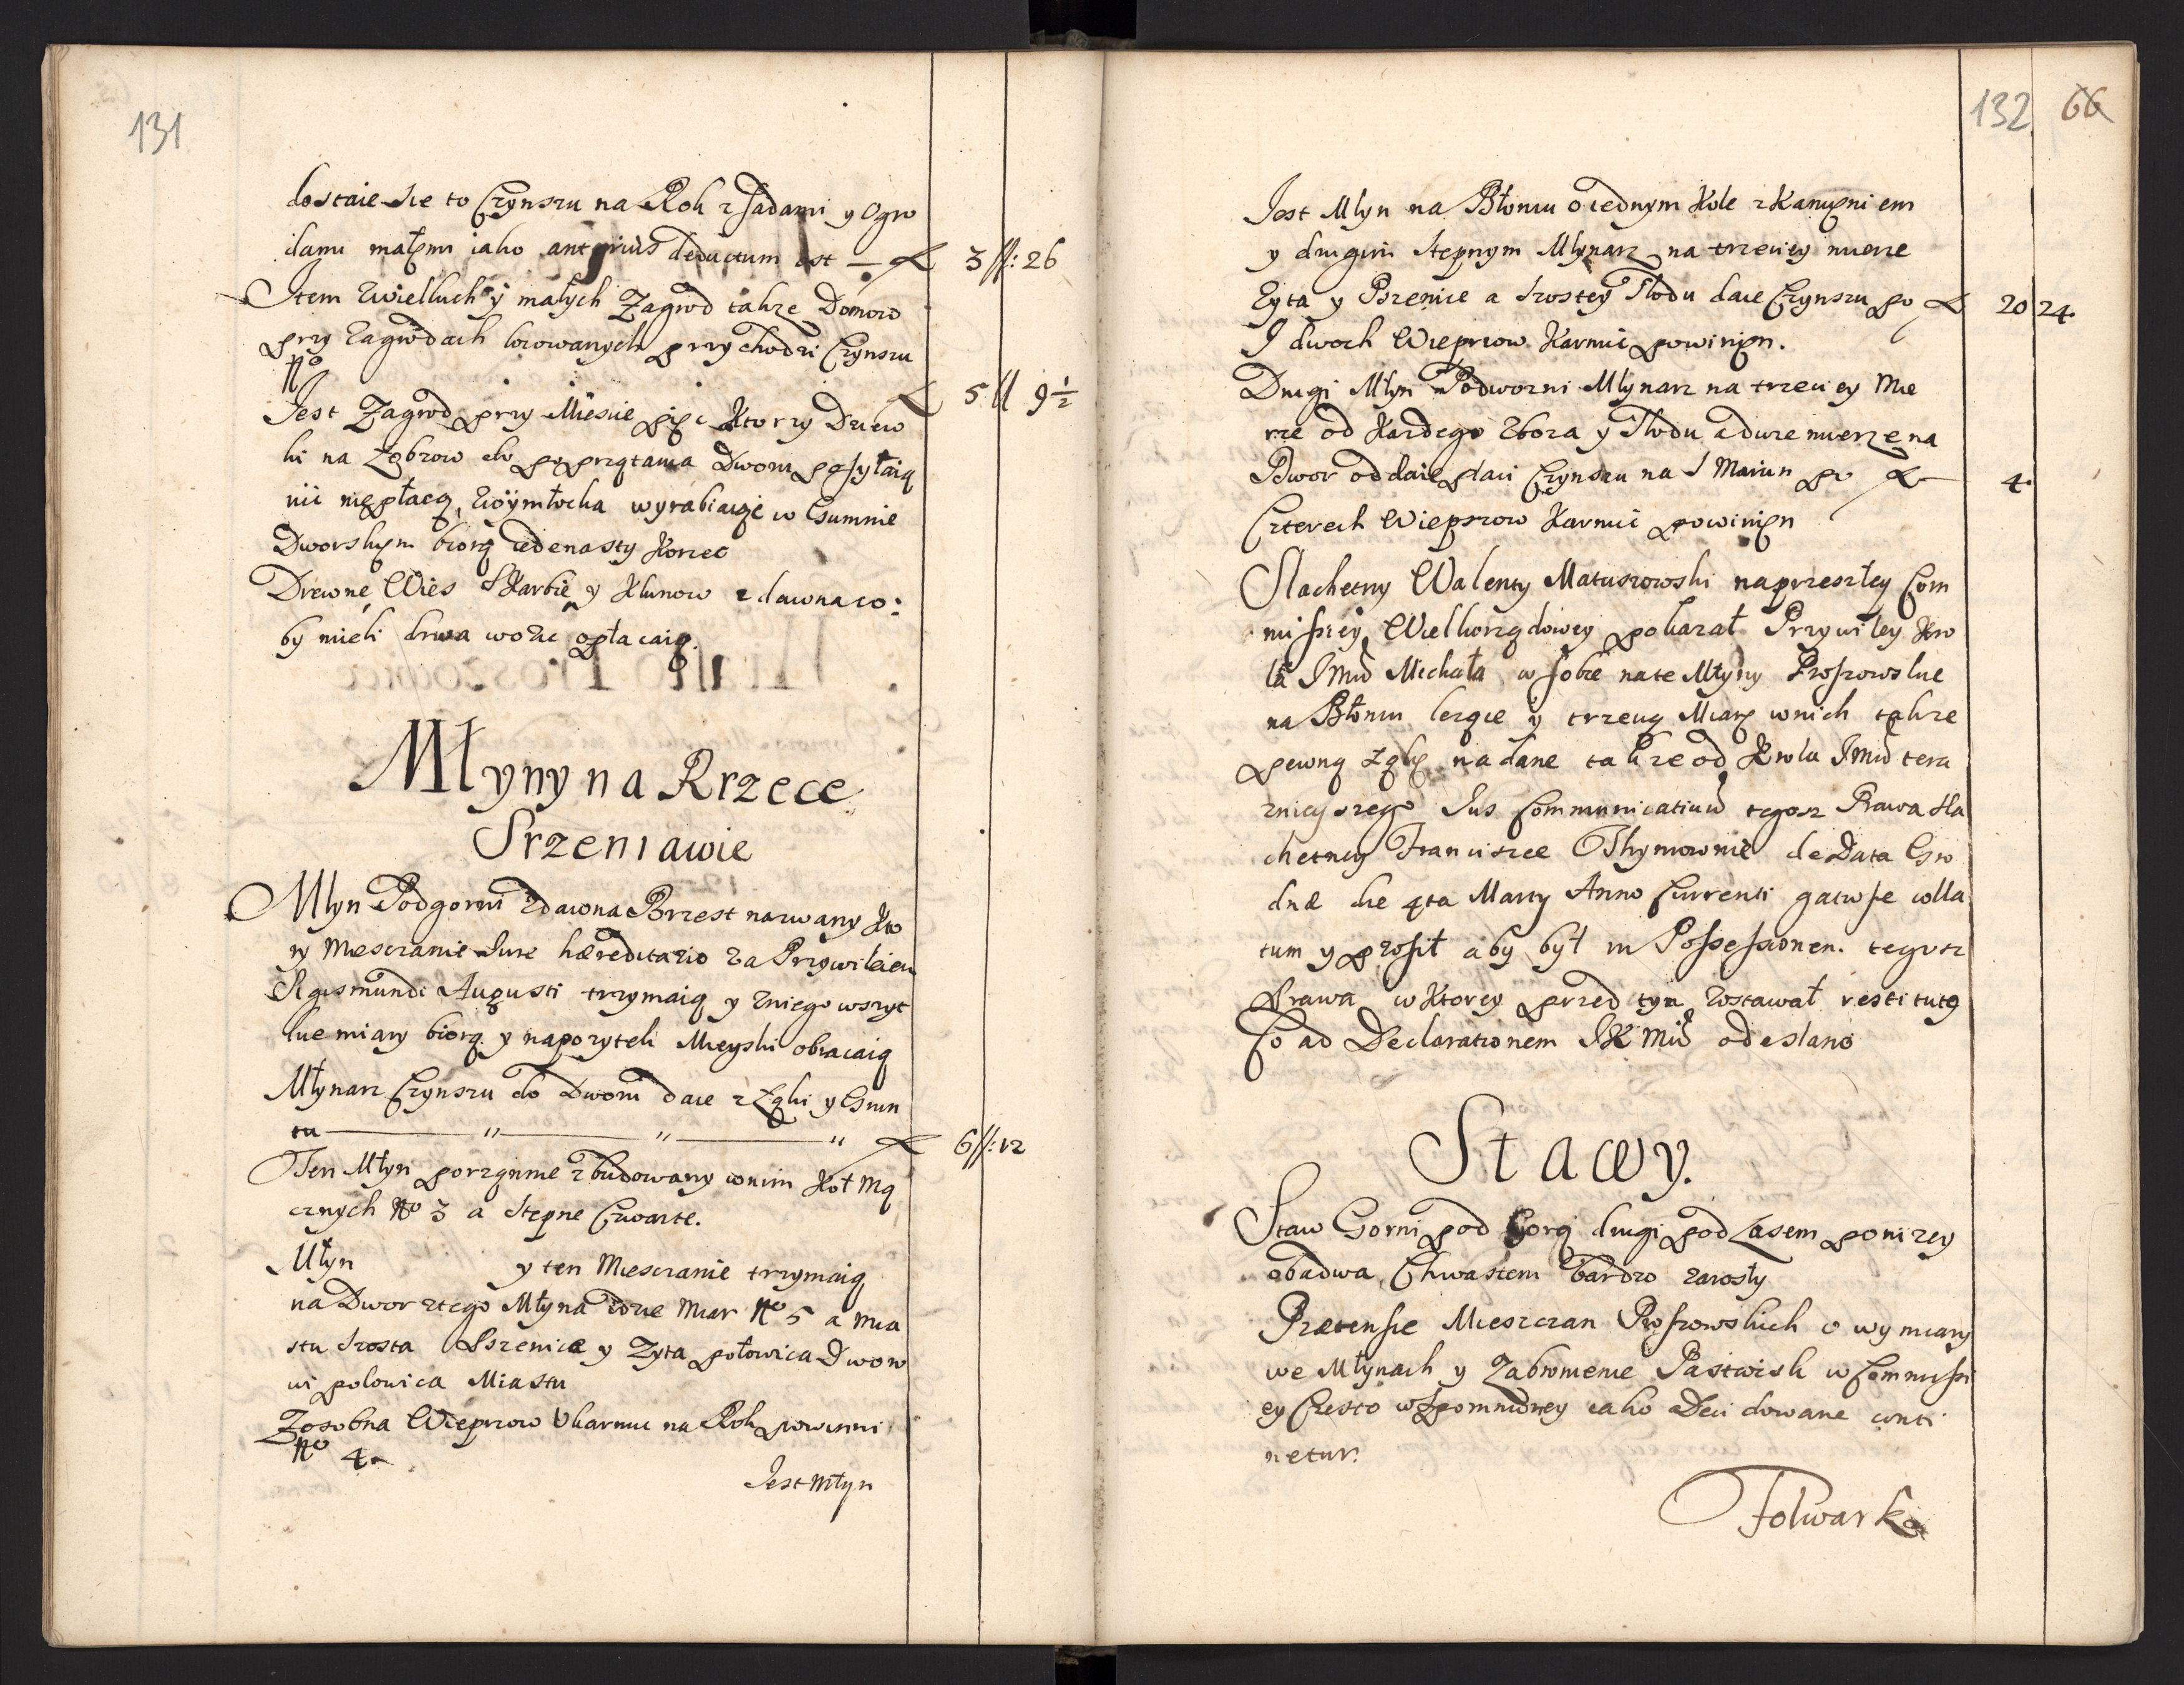 131
dostaie sie to Czynszu na Rok z sadami y Ogro
dami małymi iako anterius deductum est — 3 //: 26
Item Zwielkich y małych Zagrod także Domow
przy Zagrodach locowanych przychodzi Czynszu
No 5 // 9 1/2
Jest Zagrod przy Miescie pięc ktorzy Dziew
ki na Zobrow do poprzątania Dworu posyłaią
nic niepłacą, Zwymłocka wyrabiaiąc w Gumnie
Dworskym biorą iedenasty Korzec
Drewne Wies Skarbie y Klunow zdawna co:
by mieli drwa wozic opłacaią.
Młyny na Rrzece
Srzeniawie
Młyn Podgorni zdawna Brzest nazwany kto
ry Miesczanie Jure hæreditario za Przywileiem
Sigismundi Augusti trzymaią y zniego wszyt
kie miary biorą y napozyteli Mieyski obracaią
Młynarz Czynszu do Dworu daie z Ząki y Grun
tu — " — " — " 6 //: 12
Ten Młyn porządnie zbudowany wnim Koł mą
cznych No 3 a Stępne Czwarte.
Młyn y ten Miesczanie trzymaią
na Dwor ztego Młyna idzie Miar No 5 a Mia
stu szosta Pszenice y Zyta połowica Dworo
wi polowica Miastu
Zosobna Wieprzow Ukarmic na Rok powinni
No 4.
Jest Młyn
132 66
Jest Młyn na Błoniu o iednym Kole z Kamieniem
y drugim Stępnym Młynarz na trzeciey mierze
Zyta y Pszenice a szostey Słodu daie Czynszu po 20 24.
I dwoch Wieprzow Karmic powinien.
Drugi Młyn Podworni Młynarz na trzeciey Mie
rze od Kazdego Zboza y Słodu a dwie mierze na
Dwor oddaie płaci Czynszu na S Marcin po 4.
Czterech Wieprzow Karmic powinien
Slachetny Walenty Matuszowski naprzeszłey Com
missiey Wielkorządowey pokazał Przywiley Kro
la JMci Michała, w sobie na te Młyny Proszowskie
na Błoniu lezące y trzecią Miarę wnich takze
pewną Ząkę nadane takze od Krola JMci tera
znieyszego Jus Communicativum tegosz Prawa sla
chetney Franciszce Thymownie de Data Gro
dnæ die 4ta Marty Anno Currenti gatwse colla
tum y prosił aby był in Possessionem tegosz
Prawa w ktorey przed tym zostawał restitutq
Co ad Declarationem JK Mci odeslano
Stawy.
Staw Gorni pod Gorą drugi pod Lasem ponizey
obadwa, Chwastem bardzo zarosły
Prætensie Miesczan Proszowskich o wymiary
we Młynach y Zabronienie Pastwisk w Commissi
ey Często wspomnioney iako Deci dowane conti
netur.
Folwark